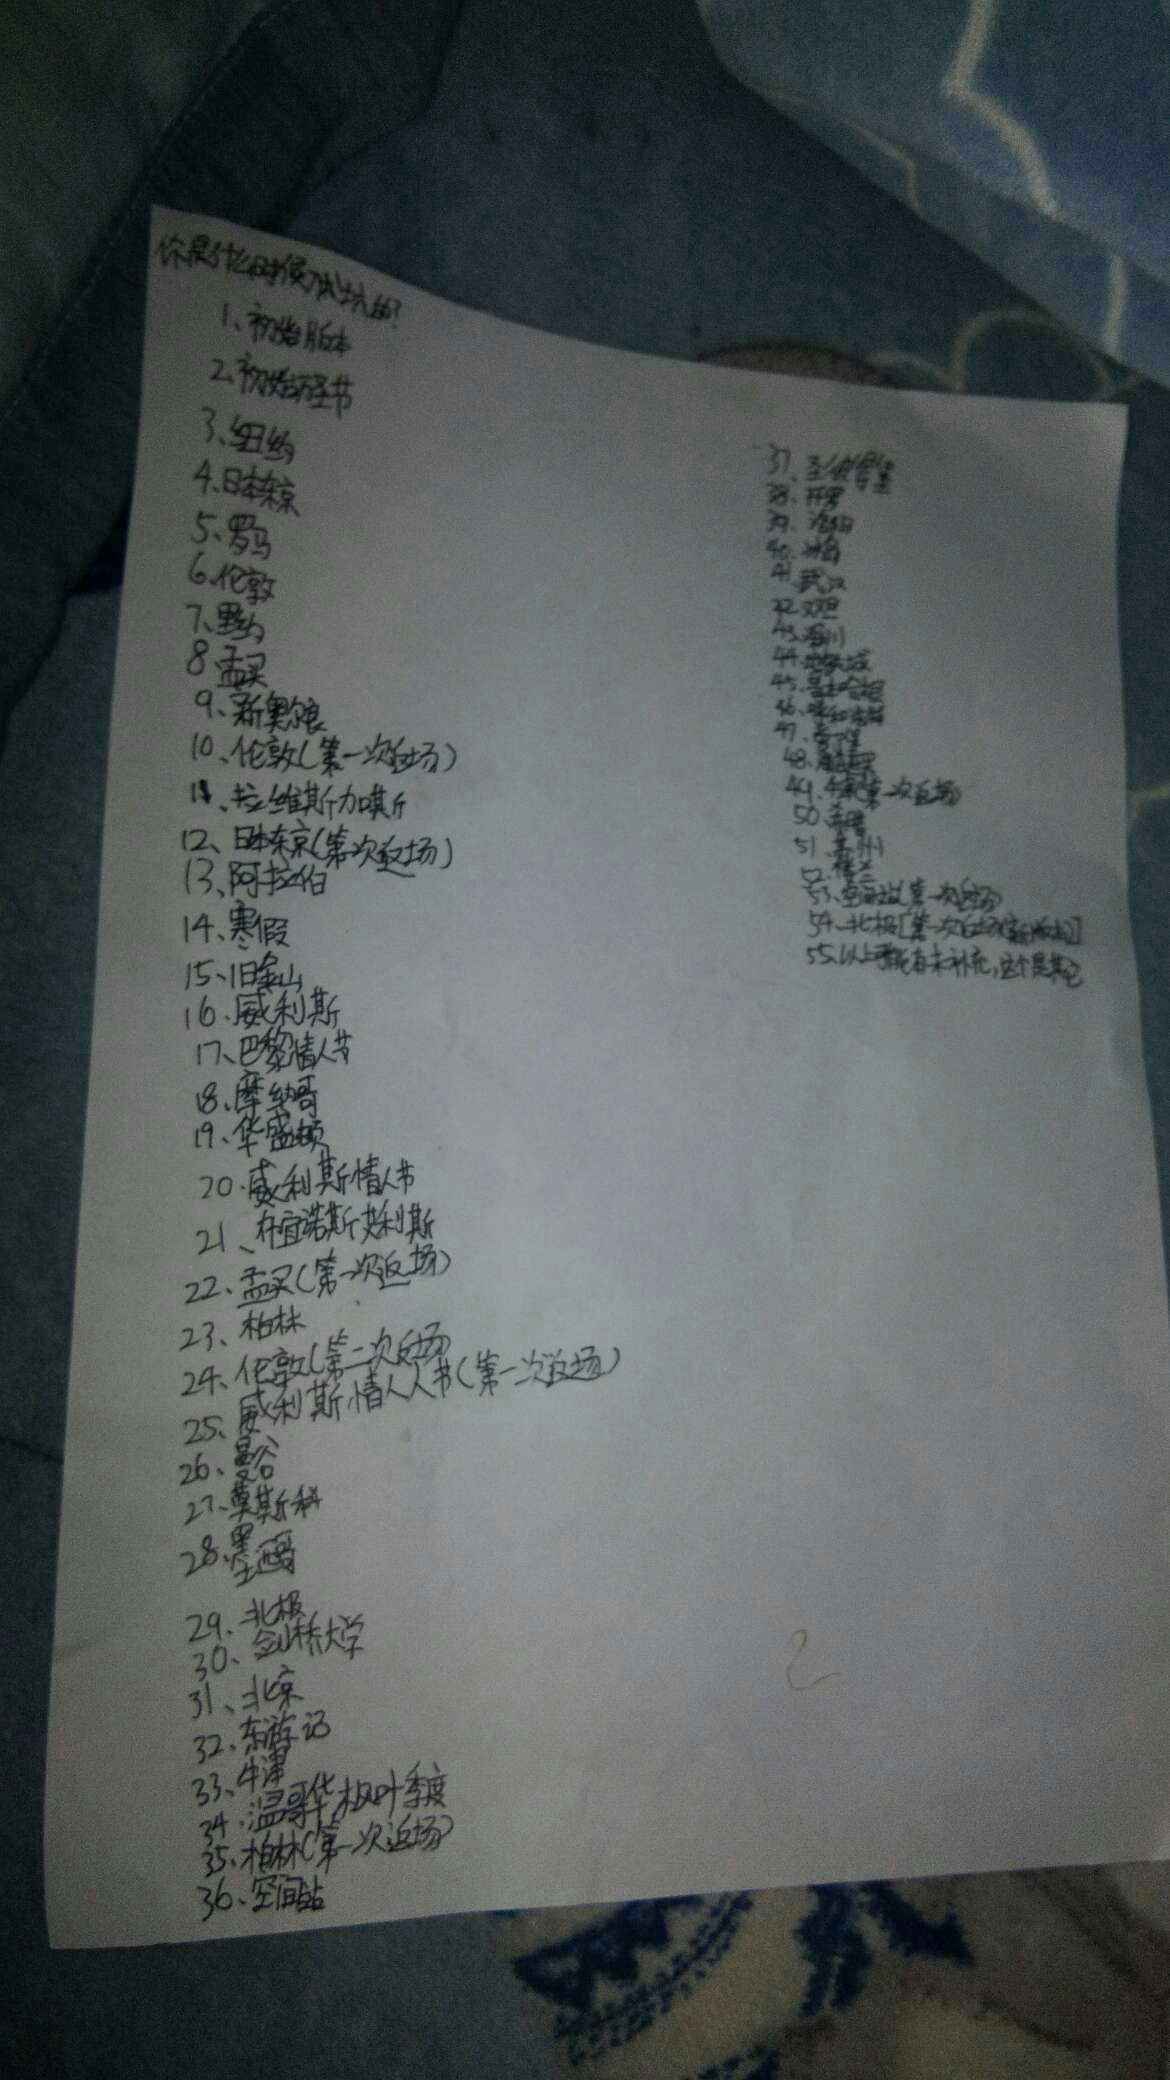 你是什么时候入坑的?
1、初始版本
2、初始万圣节
3、纽约
4、日本东京
5、罗马
6、伦敦
7、里约
8、孟买
9、新奥尔良
10、伦敦(第一次返场)
11、拉维斯加斯
12、日本东京(第一次返场)
13、阿拉伯
14、寒假
15、旧金山
16、威利斯
17、巴黎情人节
18、摩纳哥
19、华盛顿
20、威利斯情人节
21、布宜诺斯艾利斯
22、孟买(第一次返场)
23、柏林
24、伦敦(第二次返场)
25、威利斯情人节(第一次返场)
26、曼谷
27、莫斯科
28、墨西哥
29、北极
30、剑桥大学
31、北京
32、东游记
33、牛津
34、温哥华枫叶季度
35、柏林(第一次返场)
36、空间站
37、圣彼得堡
38、开罗
39、洛阳
40、
41、武汉
42、
43、
44、
45、哥本哈根
46、
47、
48、
49、(第一次返场)
50、
51、苏州
52、楼兰
53、空间站(第一次返场)
54、北极[第一次返场]
55、以上可能有未补充,这个是其它
2